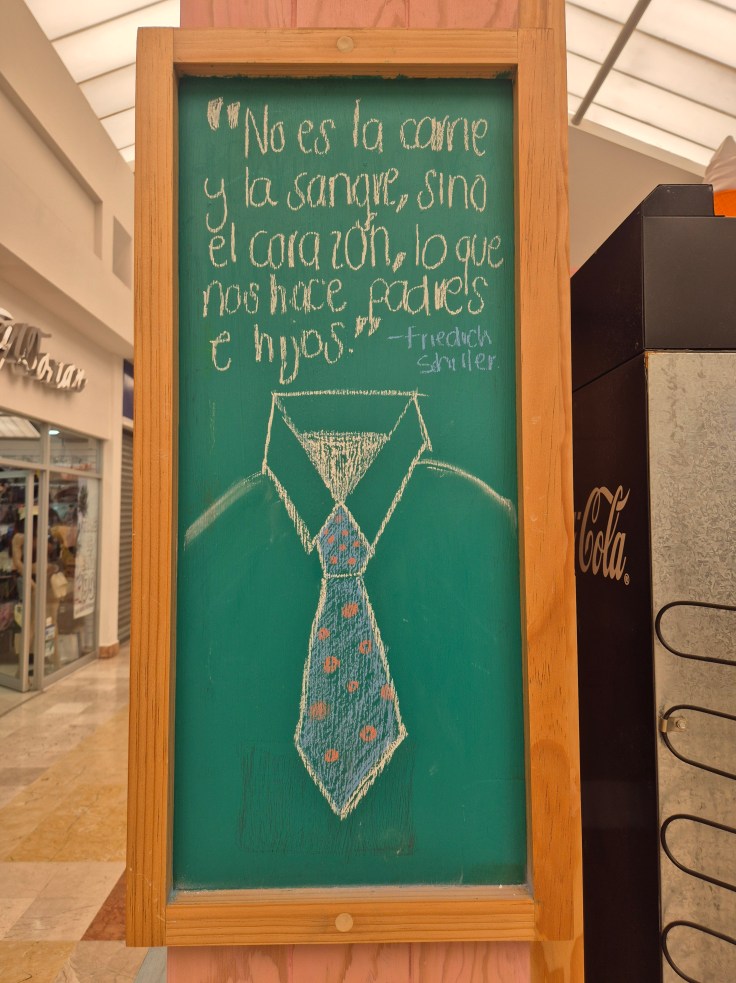 "No es la carne
y la sangre, sino
el corazón, lo que
nos hace padres
e hijos."
-Friedrich
Schiller.
Cola®